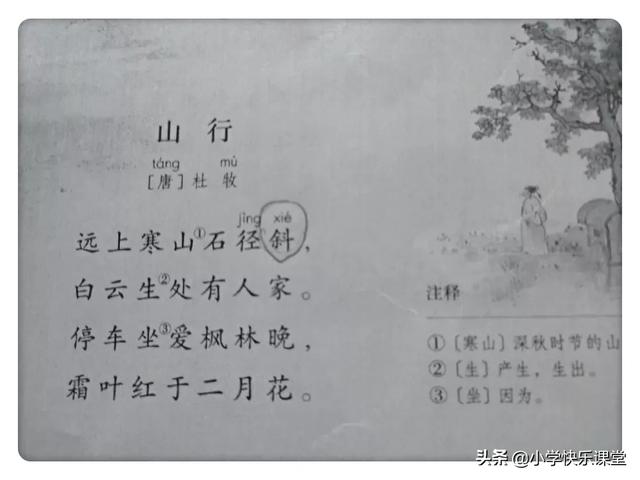 山 行
táng mù
〔唐〕杜 牧
jìng xié
远上寒山①石径斜，
白云生②处有人家。
停车坐③爱枫林晚，
霜叶红于二月花。
注释
①〔寒山〕深秋时节的山
②〔生〕产生，生出。
③〔坐〕因为。
头条 @小学快乐课堂